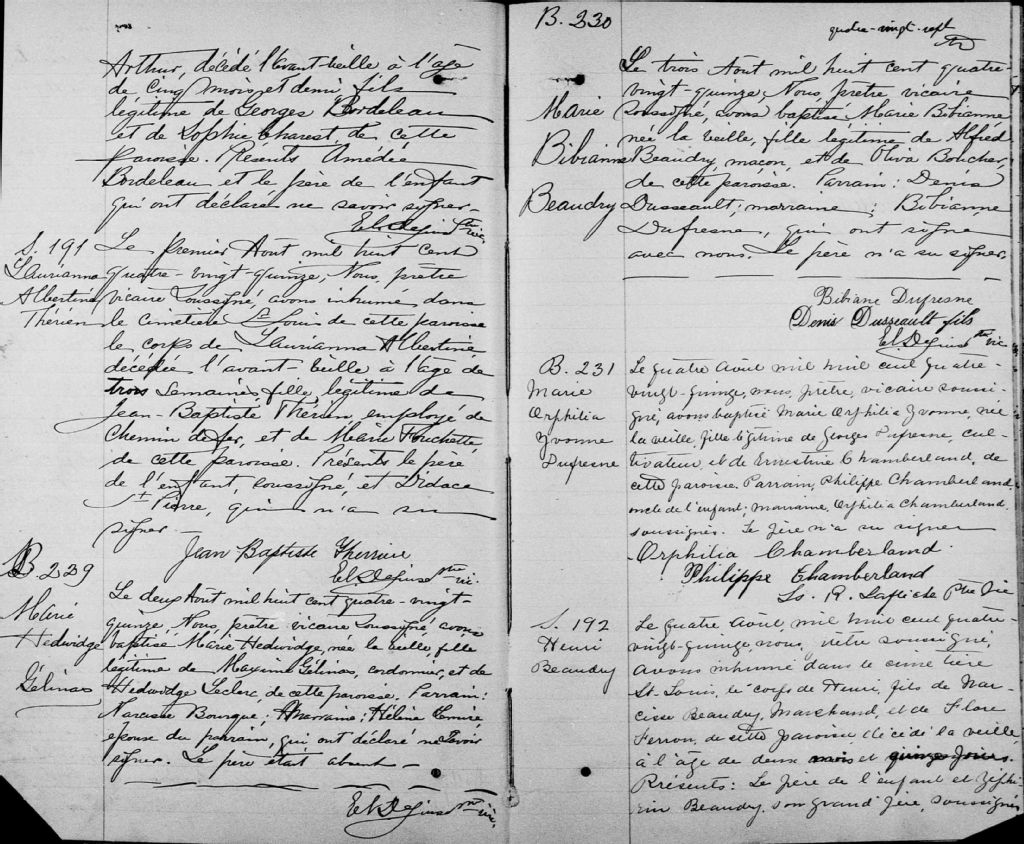 Arthur, décédé l'avant-veille à l'âge
de cinq mois et demi fils
légitime de Georges Bordeleau
et de Sophie Charest de cette
paroisse. Présents Amédée
Bordeleau et le père de l'enfant
qui ont déclaré ne savoir signer-
S. 191
Laurianna
Albertine
Thérien
Le premier Aout mil huit cent
quatre-vingt-quinze, Nous, prêtre
vicaire soussigné, avons inhumé dans
le cimetière St Louis de cette paroisse
le corps de Laurianna Albertine
décédée l'avant-veille à l'âge de
trois semaines, fille légitime de
Jean-Baptiste Thérien employé de
chemin de fer, et de Marie Fouchette
de cette paroisse. Présents le père
de l'enfant, soussigné, et Didace
St Pierre, qui n'a su
signer-
Jean Baptiste Therrien
B 229
Marie
Hedwidge
Gélinas
Le deux Aout mil huit cent quatre-vingt-
quinze Nous, prêtre vicaire soussigné, avons
baptisé Marie Hedwidge, née la veille, fille
légitime de Maxime Gélinas, cordonnier, et de
Hedwidge Leclerc, de cette paroisse. Parrain:
Narcisse Bourque; Marraine: Hélène
épouse du parrain, qui ont déclaré ne savoir
signer. Le père était absent-
quatre-vingt-sept
B. 230
Marie
Bibianne
Beaudry
Le trois Aout mil huit cent quatre-
vingt-quinze, Nous, prêtre vicaire
soussigné, avons baptisé Marie Bibianne
née la veille, fille légitime de Alfred
Beaudry, maçon, et de Oliva Boucher,
de cette paroisse. Parrain: Denis
Dusseault; marraine: Bibianne
Dufresne, qui ont signé
avec nous. Le père n'a su signer.
Bibiane Dufresne
Denis Dusseault fils
B. 231
Marie
Orphilia
Yvonne
Dufresne
Le quatre Août mil huit cent quatre-
vingt-quinze, nous, prêtre, vicaire soussi-
gné, avons baptisé Marie Orphilia Yvonne, née
la veille, fille légitime de Georges Dufresne, cul-
tivateur, et de Ernestine Chamberland, de
cette paroisse. Parrain, Philippe Chamberland,
oncle de l'enfant; marraine, Orphilia Chamberland,
soussignés. Le père n'a su signer
Orphilia Chamberland.
Philippe Chamberland
Ls. R. Laflèche Ptre Vic
S. 192
Henri
Beaudry
Le quatre Août mil huit cent quatre-
vingt-quinze, nous, prêtre soussigné,
avons inhumé dans le cimetière
St. Louis, le corps de Henri, fils de Nar-
cisse Beaudry, Marchand, et de Flore
Ferron, de cette paroisse décédé la veille
à l'âge de deux mois et quinze jours.
Présents: Le père de l'enfant et Zéphi-
rin Beaudry, son grand'père, soussignés